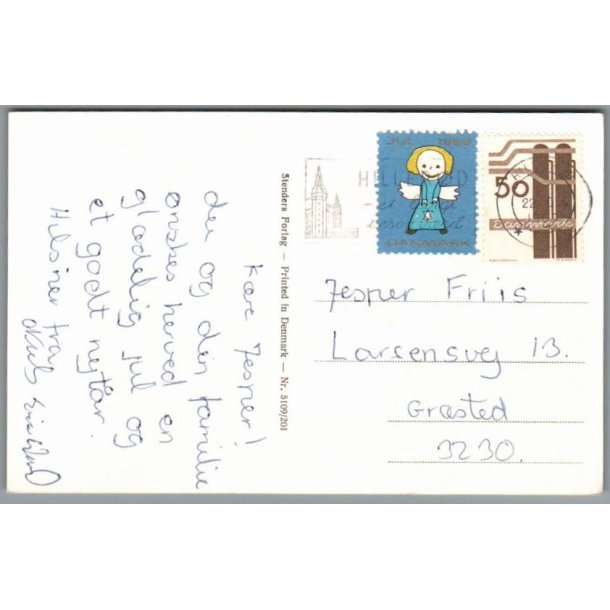 Kære Jesper!
du og din familie
ønskes herved en
glædelig jul og
et godt nytår.
Hilsner fra
Stenders Forlag — Printed in Denmark — Nr. 5109/201
JUL 1968
DANMARK
50
DANMARK
22
Jesper Friis
Larsensvej 13.
Græsted
3230.